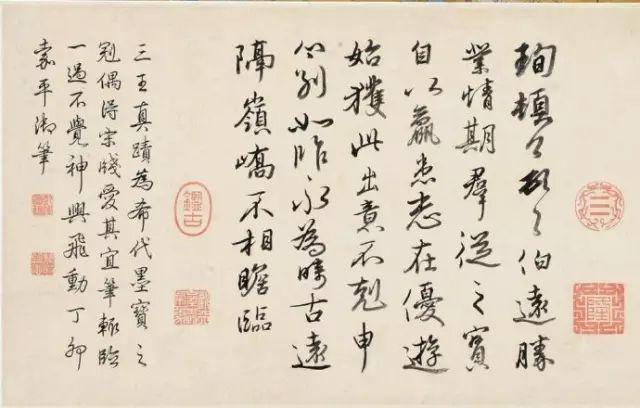 珣頓首頓首伯遠勝
業情期羣從之寶
自以羸患志在優遊
始獲此出意不剋申
分別如昨永為疇古遠
隔嶺嶠不相瞻臨
三王真蹟為希代墨寶之
冠偶得宋牋愛其宜筆輒臨
一過不覺神興飛動丁卯
嘉平御筆
隆